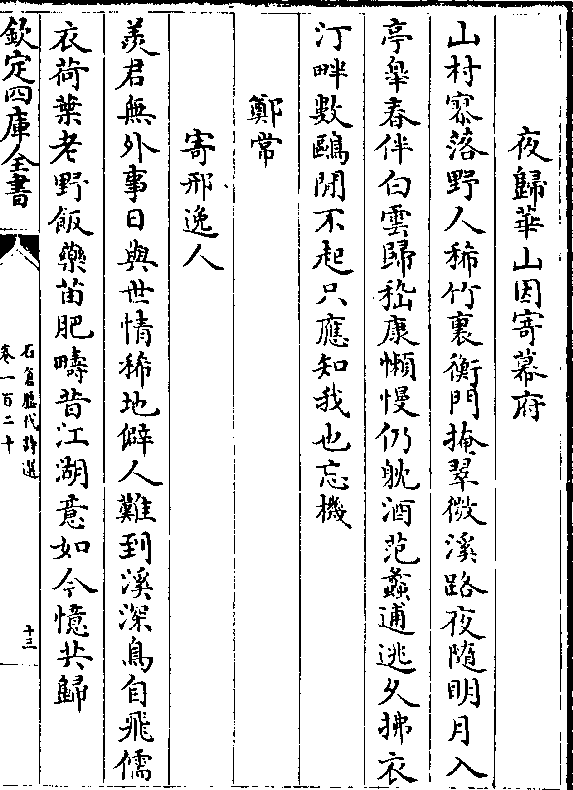 夜歸華山因寄幕府
山村寥落野人稀竹裏衡門掩翠微溪路夜隨明月入
亭臯春伴白雲歸嵇康懶慢仍躭酒范蠡逋逃久拂衣
汀畔數鷗閒不起只應知我也忘機
鄭常
寄邢逸人
羨君無外事日與世情稀地僻人難到溪深鳥自飛儒
衣荷葉老野飯藥苗肥疇昔江湖意如今憶共歸
欽定四庫全書
石倉歷代詩選
卷一百二十
十三